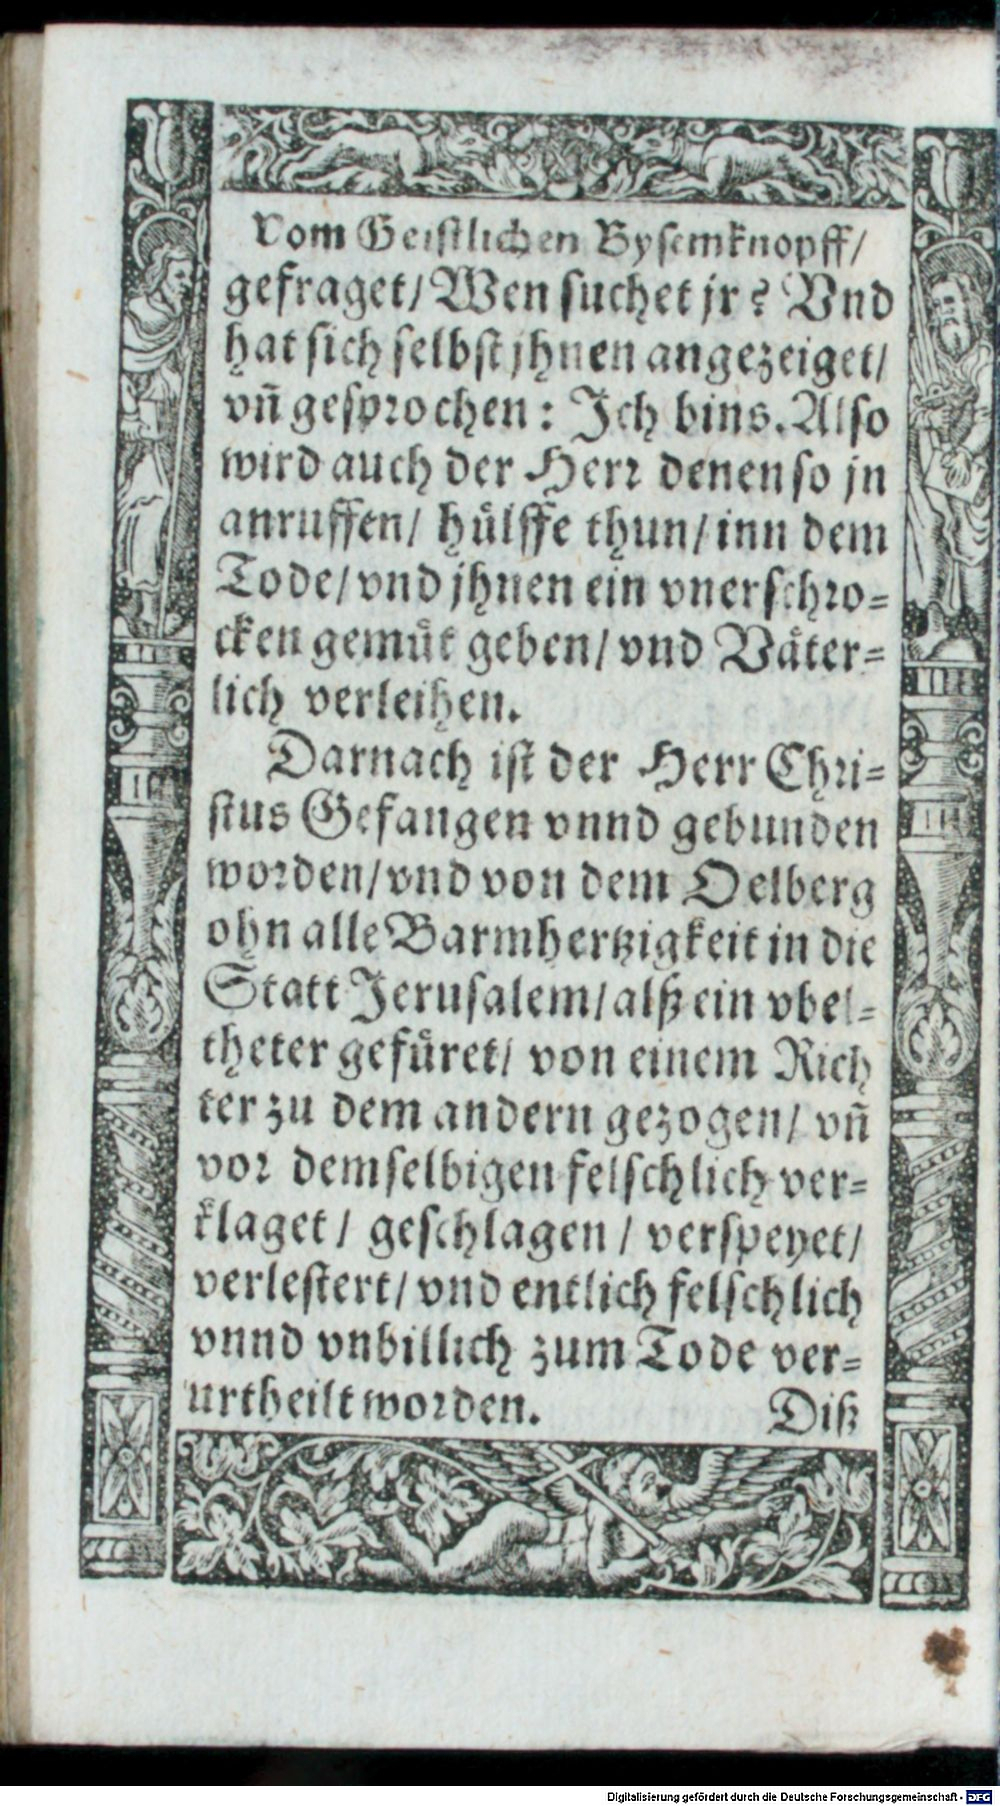 Vom Geistlichen Bysemknopff/
gefraget/ Wen suchet jr? Vnd
hat sich selbst jhnen angezeiget/
vñ gesprochen: Ich bins. Also
wird auch der Herr denen so jn
anruffen/ hülffe thun/ inn dem
Tode/ vnd jhnen ein vnerschro-
cken gemüt geben/ vnd Väter-
lich verleihen.
Darnach ist der Herr Chri-
stus Gefangen vnnd gebunden
worden/ vnd von dem Oelberg
ohn alle Barmhertzigkeit in die
Statt Jerusalem/ alß ein vbel-
theter gefüret/ von einem Rich
ter zu dem andern gezogen/ vñ
vor demselbigen felschlich ver-
klaget/ geschlagen/ verspeyet/
verlestert/ vnd entlich felschlich
vnnd vnbillich zum Tode ver-
urtheilt worden. Diß
Digitalisierung gefördert durch die Deutsche Forschungsgemeinschaft - DFG